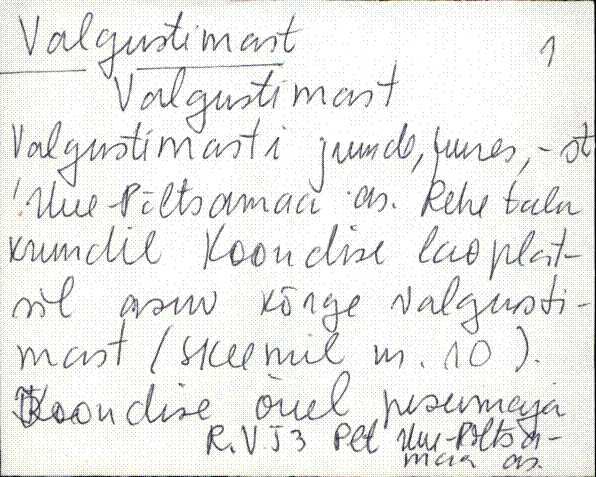 Valgustimast 1
Valgustimast
Valgustimasti juude, juures, -st
Uue-Põltsamaa as. Rehe talu
krundil Koondise laoplat-
sil asuv kõrge valgusti-
mast (skeemil nr. 10).
Koondise õuel pesumaja
R. VJ3 Plt Uue-Põltsa-
maa as.